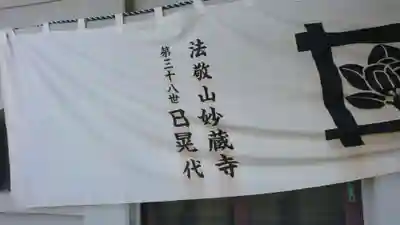 法敬山妙蔵寺
第三十八世 日晃代